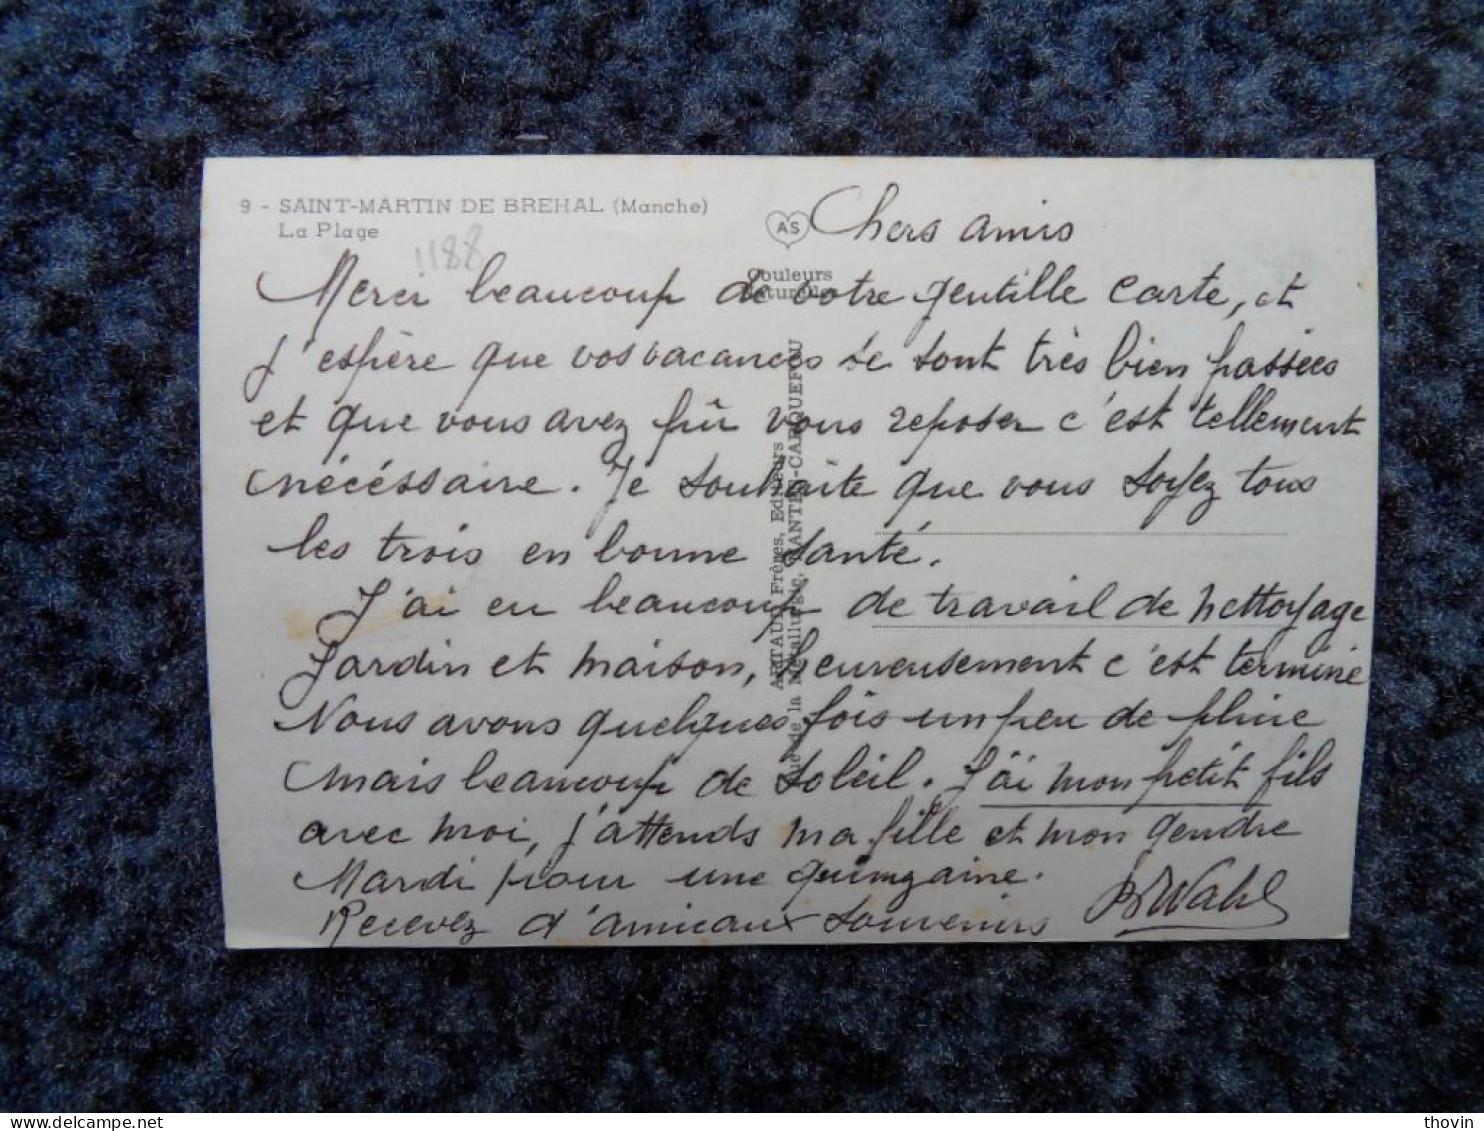 9 - SAINT-MARTIN DE BREHAL (Manche)
La Plage
1188
AS
Couleurs
Naturelles
ARTAUD Frères, Editeurs
Rue de la Métallurgie, NANTES-CARQUEFOU
Chers amis
Merci beaucoup de votre gentille carte, et
j'espère que vos vacances se sont très bien passées
et que vous avez pû vous reposer c'est tellement
nécéssaire. Je souhaite que vous soyez tous
les trois en bonne santé.
J'ai eu beaucoup de travail de nettoyage
Jardin et maison, heureusement c'est terminé
Nous avons quelques fois un peu de pluie
mais beaucoup de soleil. J'ai mon petit fils
avec moi, j'attends ma fille et mon gendre
Mardi pour une quinzaine.
Recevez d'amicaux souvenirs
Wahl
thovin